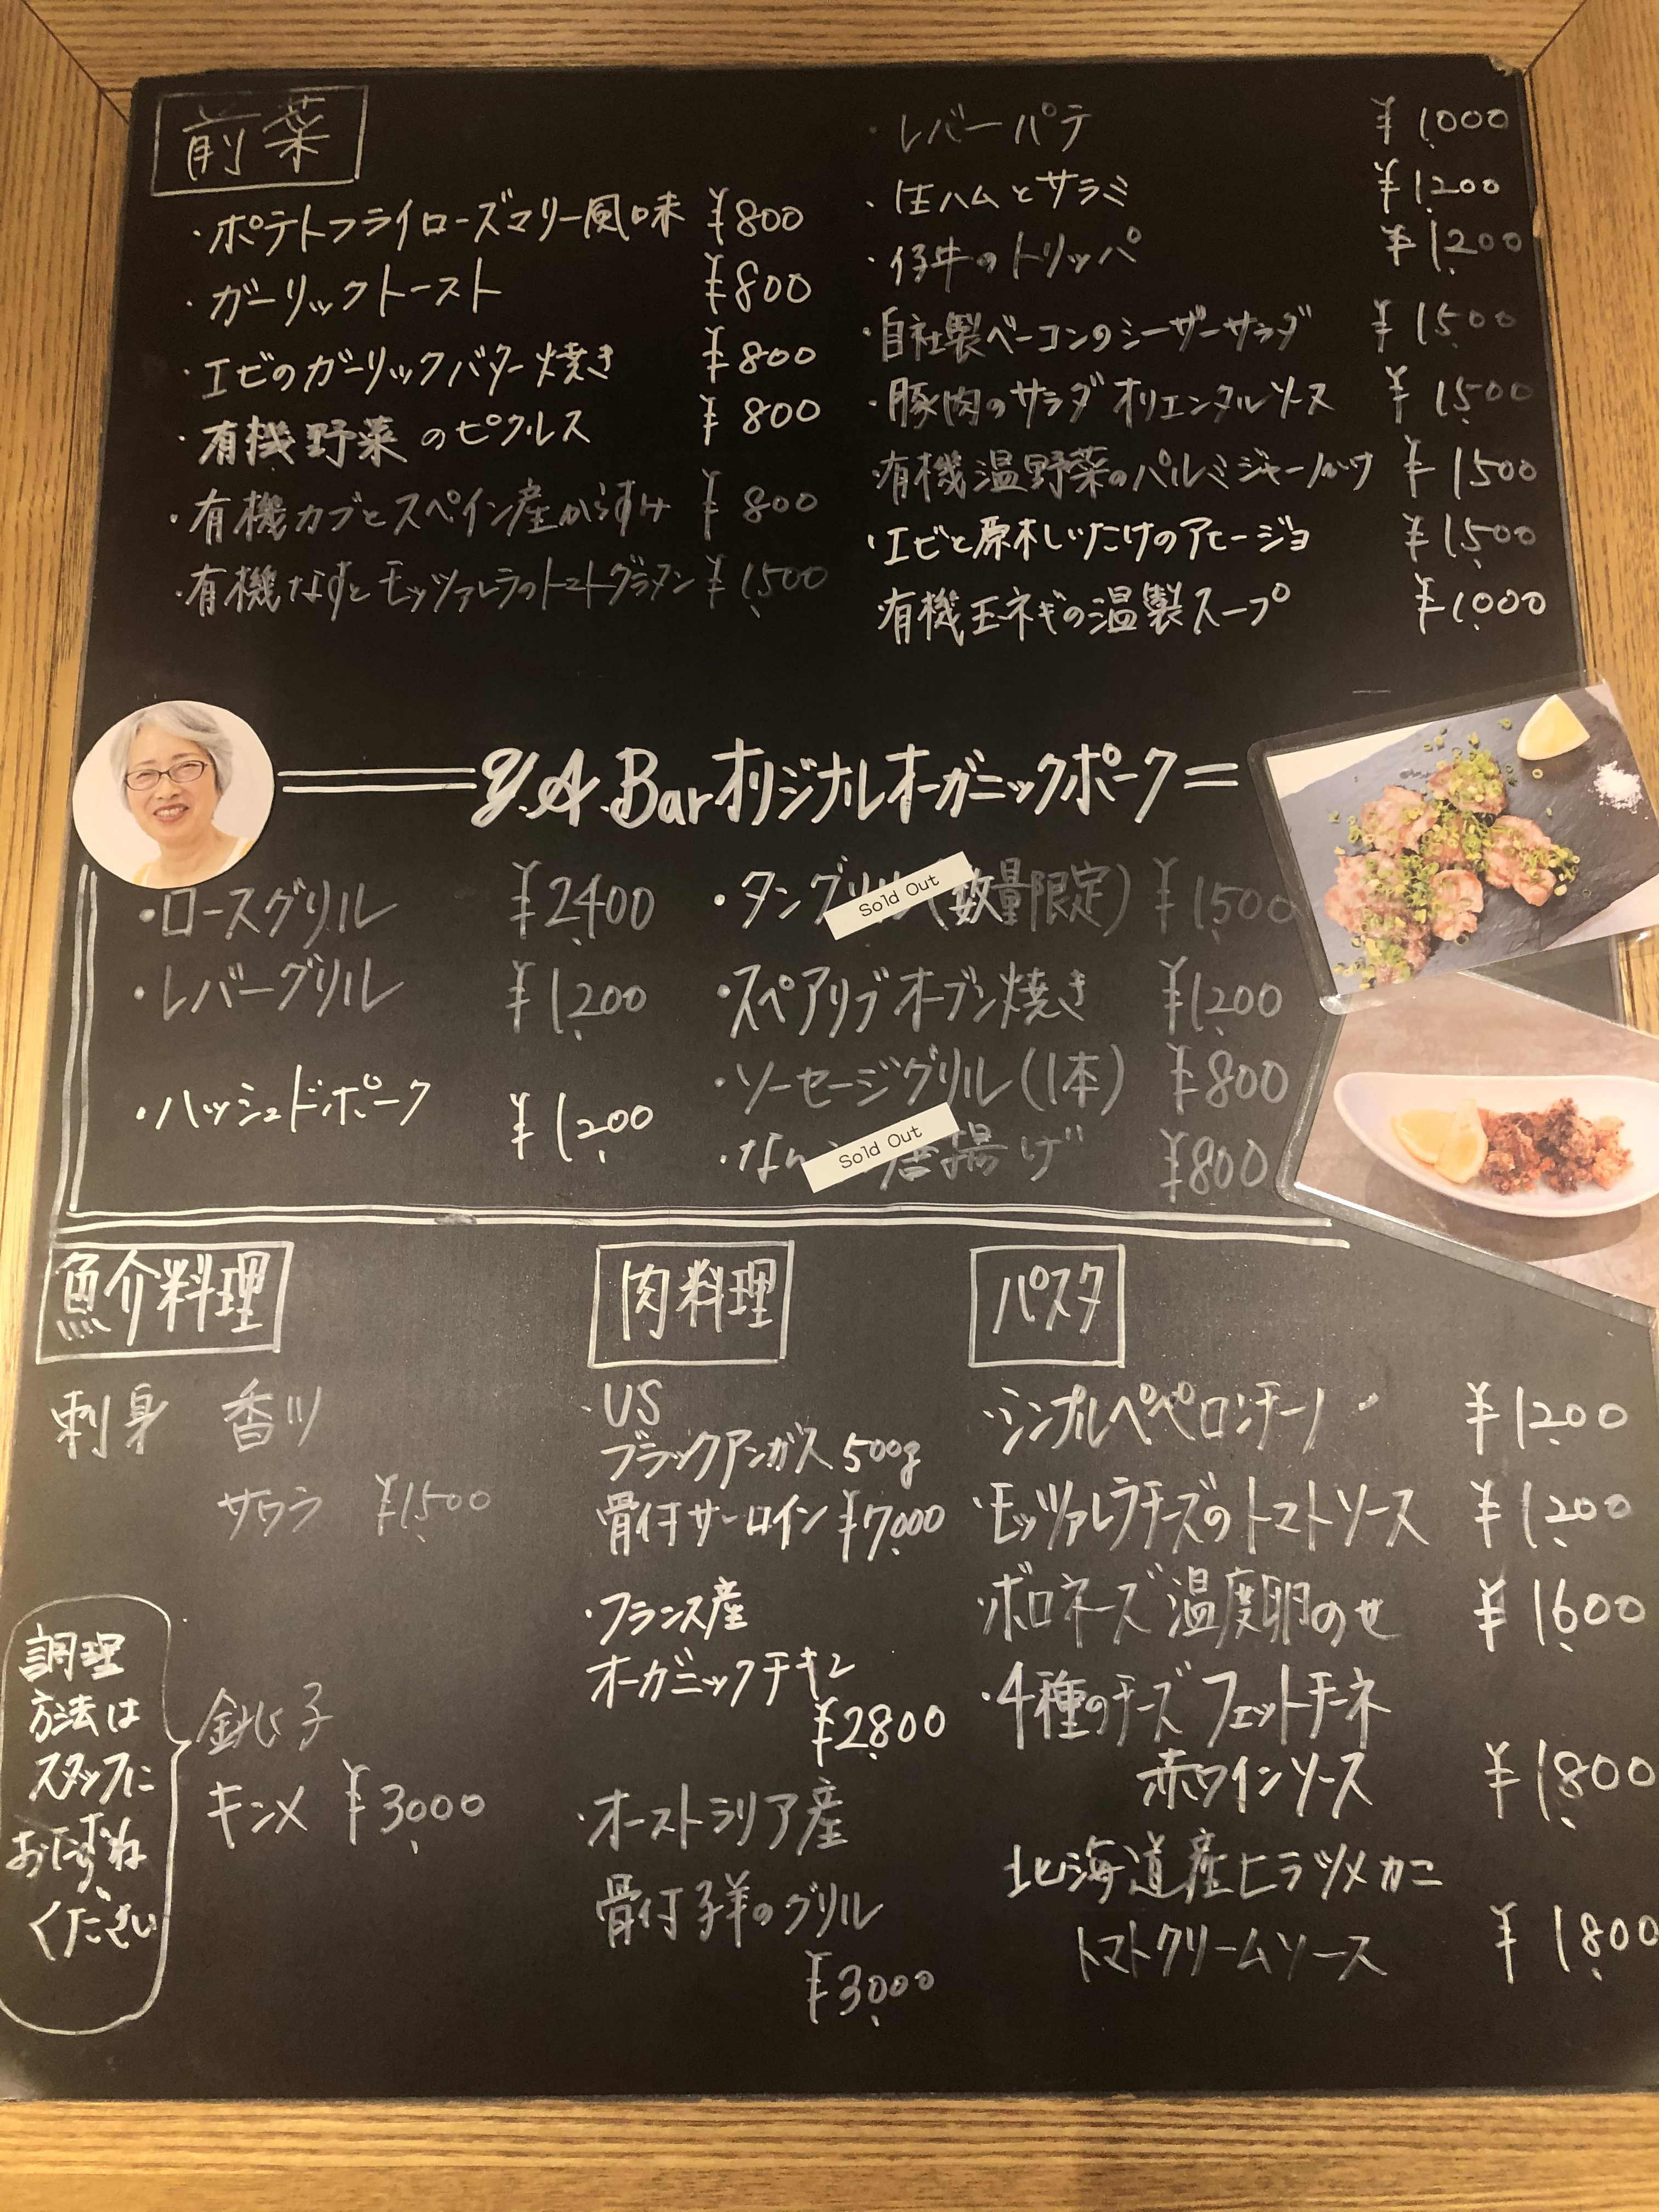 前菜
・ポテトフライローズマリー風味 ¥800
・ガーリックトースト ¥800
・エビのガーリックバター焼き ¥800
・有機野菜のピクルス ¥800
・有機カブとスペイン産からすみ ¥800
・有機なすとモッツァレラのトマトグラタン ¥1,500
・レバーパテ ¥1,000
・生ハムとサラミ ¥1,200
・仔牛のトリッパ ¥1,200
・自社製ベーコンのシーザーサラダ ¥1,500
・豚肉のサラダ オリエンタルソース ¥1,500
・有機温野菜のパルミジャーノ ¥1,500
・エビと原木しいたけのアヒージョ ¥1,500
有機玉ネギの温製スープ ¥1,000
Y.A.Barオリジナルオーガニックポーク
・ロースグリル ¥2,400
・レバーグリル ¥1,200
・ハッシュドポーク ¥1,200
・タングリル(数量限定) ¥1,500
Sold Out
・スペアリブオーブン焼き ¥1,200
・ソーセージグリル(1本) ¥800
・なん 唐揚げ ¥800
Sold Out
魚介料理
刺身 香川
サワラ ¥1,500
銚子
キンメ ¥3,000
調理
方法は
スタッフに
おたずね
ください
肉料理
・US
ブラックアンガス 500g
骨付サーロイン ¥7,000
・フランス産
オーガニックチキン
¥2,800
・オーストラリア産
骨付子羊のグリル
¥3,000
パスタ
・シンプルペペロンチーノ ¥1,200
・モッツァレラチーズのトマトソース ¥1,200
・ボロネーズ 温度卵のせ ¥1,600
・4種のチーズ フェットチーネ
赤ワインソース ¥1,800
北海道産ヒラツメカニ
トマトクリームソース ¥1,800